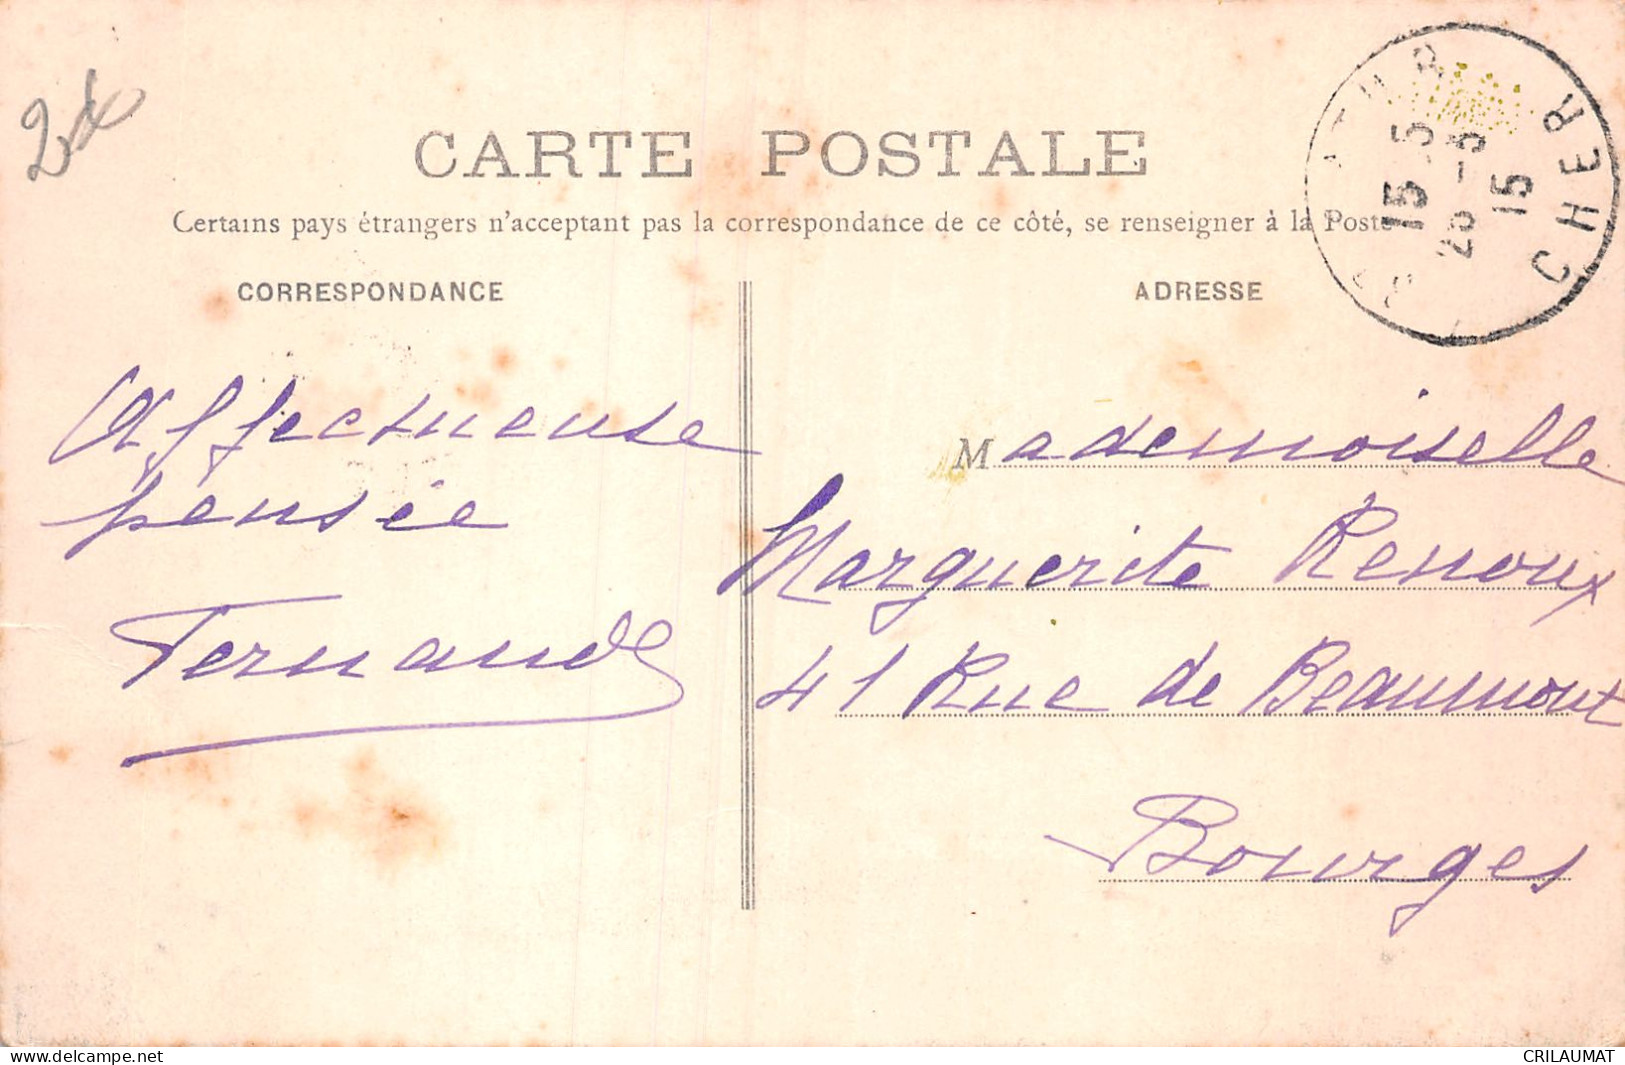 CARTE POSTALE
Certains pays étrangers n'acceptent pas la correspondance de ce côté, se renseigner à la Poste
CORRESPONDANCE
ADRESSE
Affectueuse
pensée
Fernande
Mademoiselle
Marguerite Renoux
41 Rue de Beaumont
Bourges
CHER
15 5
15
www.delcampe.net
CRILAUMAT